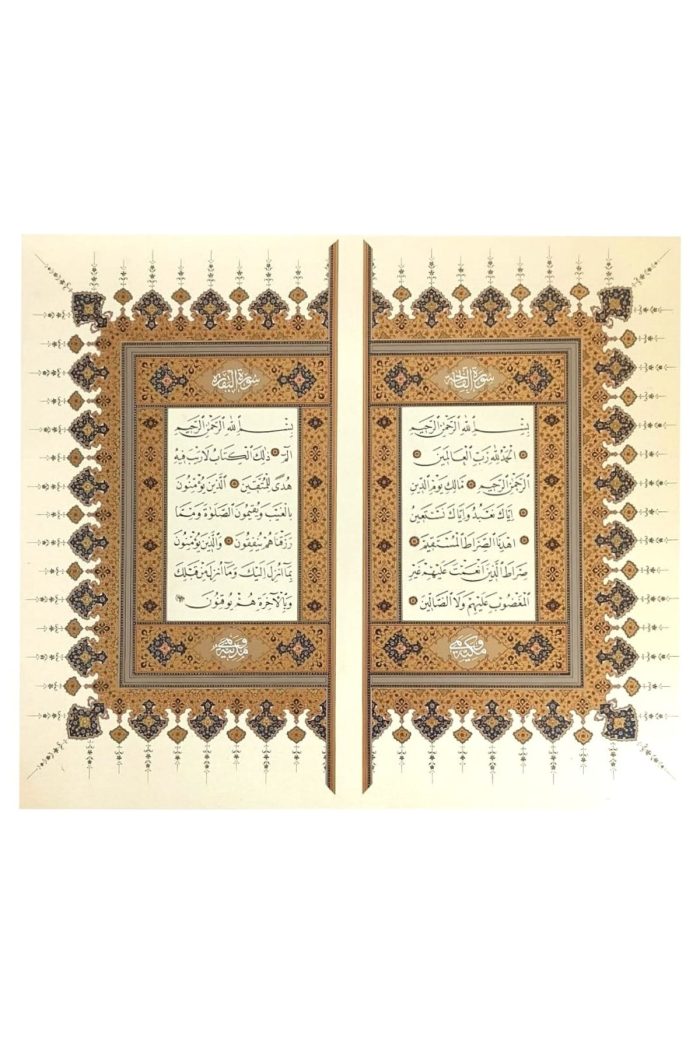 سُورَةُ الْفَاتِحَةِ
بِسْمِ اللّٰهِ الرَّحْمٰنِ الرَّحِيمِ
اَلْحَمْدُ لِلّٰهِ رَبِّ الْعَالَمِينَ
اَلرَّحْمٰنِ الرَّحِيمِ مَالِكِ يَوْمِ الدِّينِ
اِيَّاكَ نَعْبُدُ وَاِيَّاكَ نَسْتَعِينُ
اِهْدِنَا الصِّرَاطَ الْمُسْتَقِيمَ
صِرَاطَ الَّذِينَ اَنْعَمْتَ عَلَيْهِمْ غَيْرِ
الْمَغْضُوبِ عَلَيْهِمْ وَلَا الضَّالِّينَ
وَهِيَ مَكِّيَّةٌ
سُورَةُ الْبَقَرَةِ
بِسْمِ اللّٰهِ الرَّحْمٰنِ الرَّحِيمِ
الٓمٓ ذٰلِكَ الْكِتَابُ لَا رَيْبَ فِيهِ
هُدًى لِلْمُتَّقِينَ اَلَّذِينَ يُؤْمِنُونَ
بِالْغَيْبِ وَيُقِيمُونَ الصَّلٰوةَ وَمِمَّا
رَزَقْنَاهُمْ يُنْفِقُونَ وَالَّذِينَ يُؤْمِنُونَ
بِمَا اُنْزِلَ اِلَيْكَ وَمَا اُنْزِلَ مِنْ قَبْلِكَ
وَبِالْاٰخِرَةِ هُمْ يُوقِنُونَ
وَهِيَ مَدَنِيَّةٌ